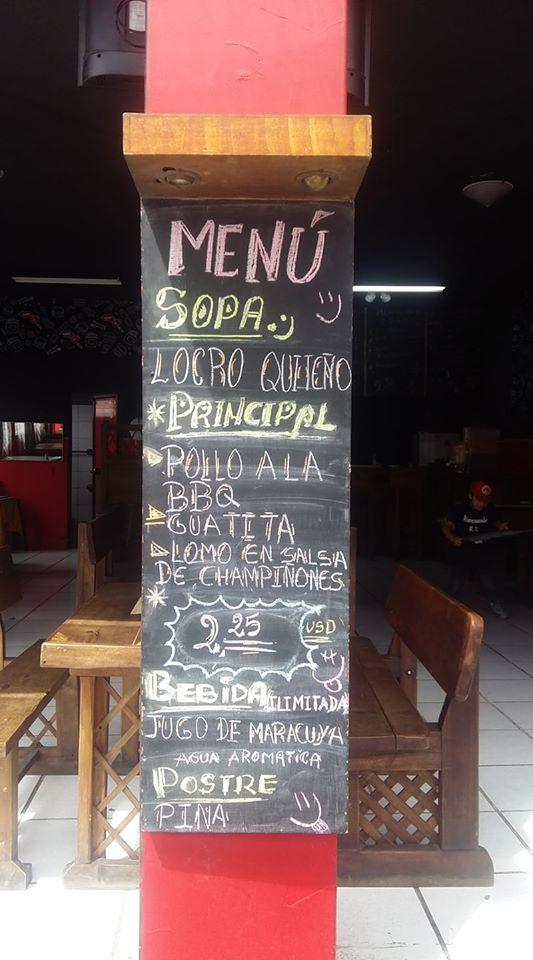 MENÚ
SOPA
LOCRO QUITEÑO
* PRINCIPAL
POLLO A LA
BBQ
GUATITA
LOMO EN SALSA
DE CHAMPIÑONES
*
2,25 USD
BEBIDA ILIMITADA
JUGO DE MARACUYA
AGUA AROMATICA
POSTRE
PIÑA